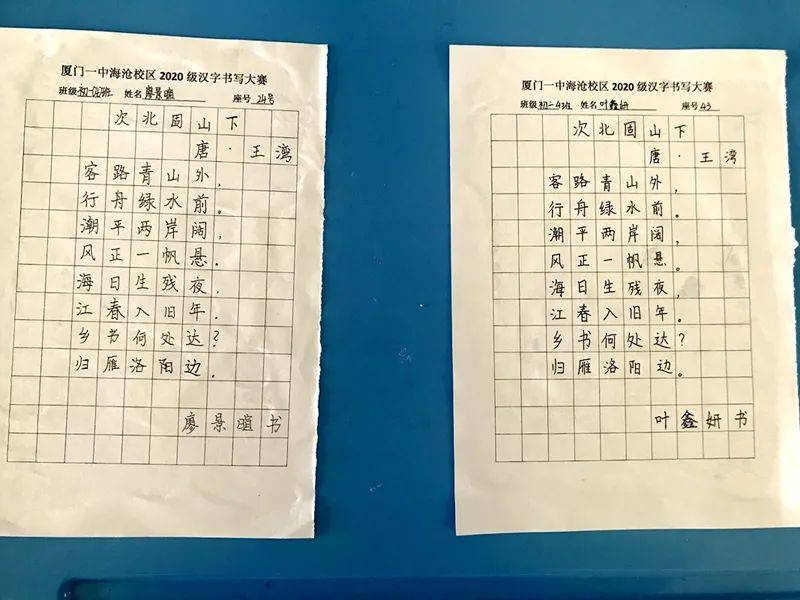 厦门一中海沧校区 2020 级汉字书写大赛
班级 初一(2)班 姓名 廖景暄 座号 24号
次北固山下
唐·王湾
客路青山外，
行舟绿水前。
潮平两岸阔，
风正一帆悬。
海日生残夜，
江春入旧年。
乡书何处达？
归雁洛阳边。
廖景暄书
厦门一中海沧校区 2020 级汉字书写大赛
班级 初一4班 姓名 叶鑫妍 座号 43
次北固山下
唐·王湾
客路青山外，
行舟绿水前。
潮平两岸阔，
风正一帆悬。
海日生残夜，
江春入旧年。
乡书何处达？
归雁洛阳边。
叶鑫妍书